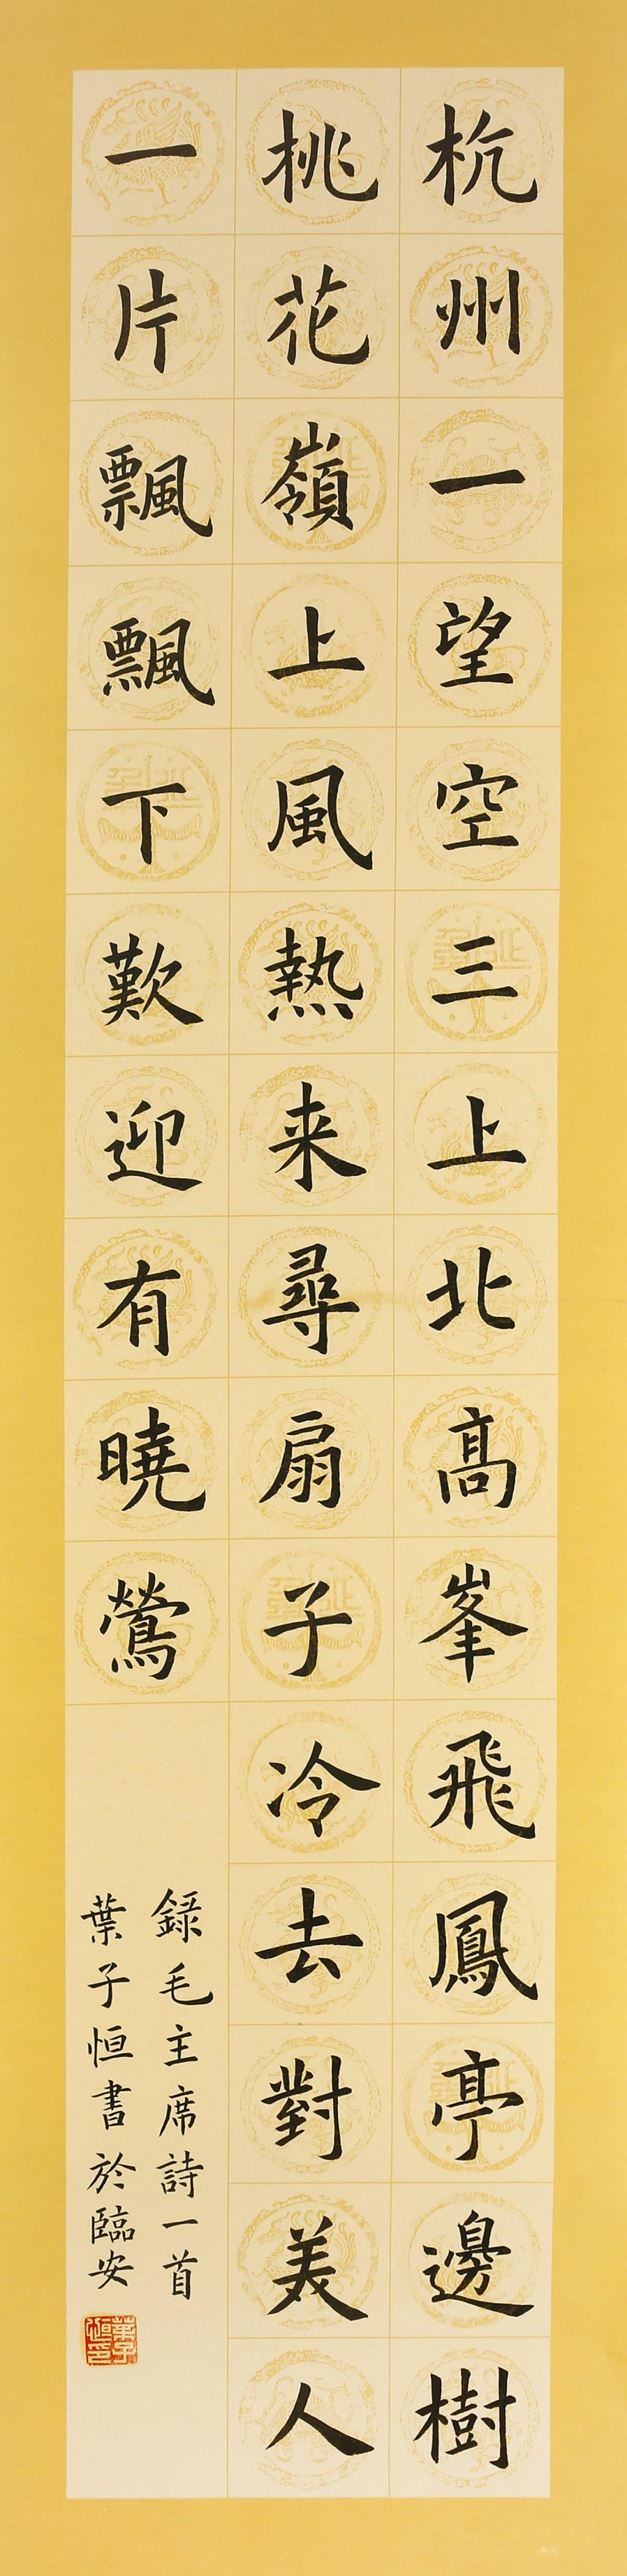 杭州一望空三上北高峯飛鳳亭邊樹
桃花嶺上風熱来尋扇子冷去對美人
一片飄飄下歎迎有曉鶯
錄毛主席詩一首
葉子恒書於臨安
葉子恒印